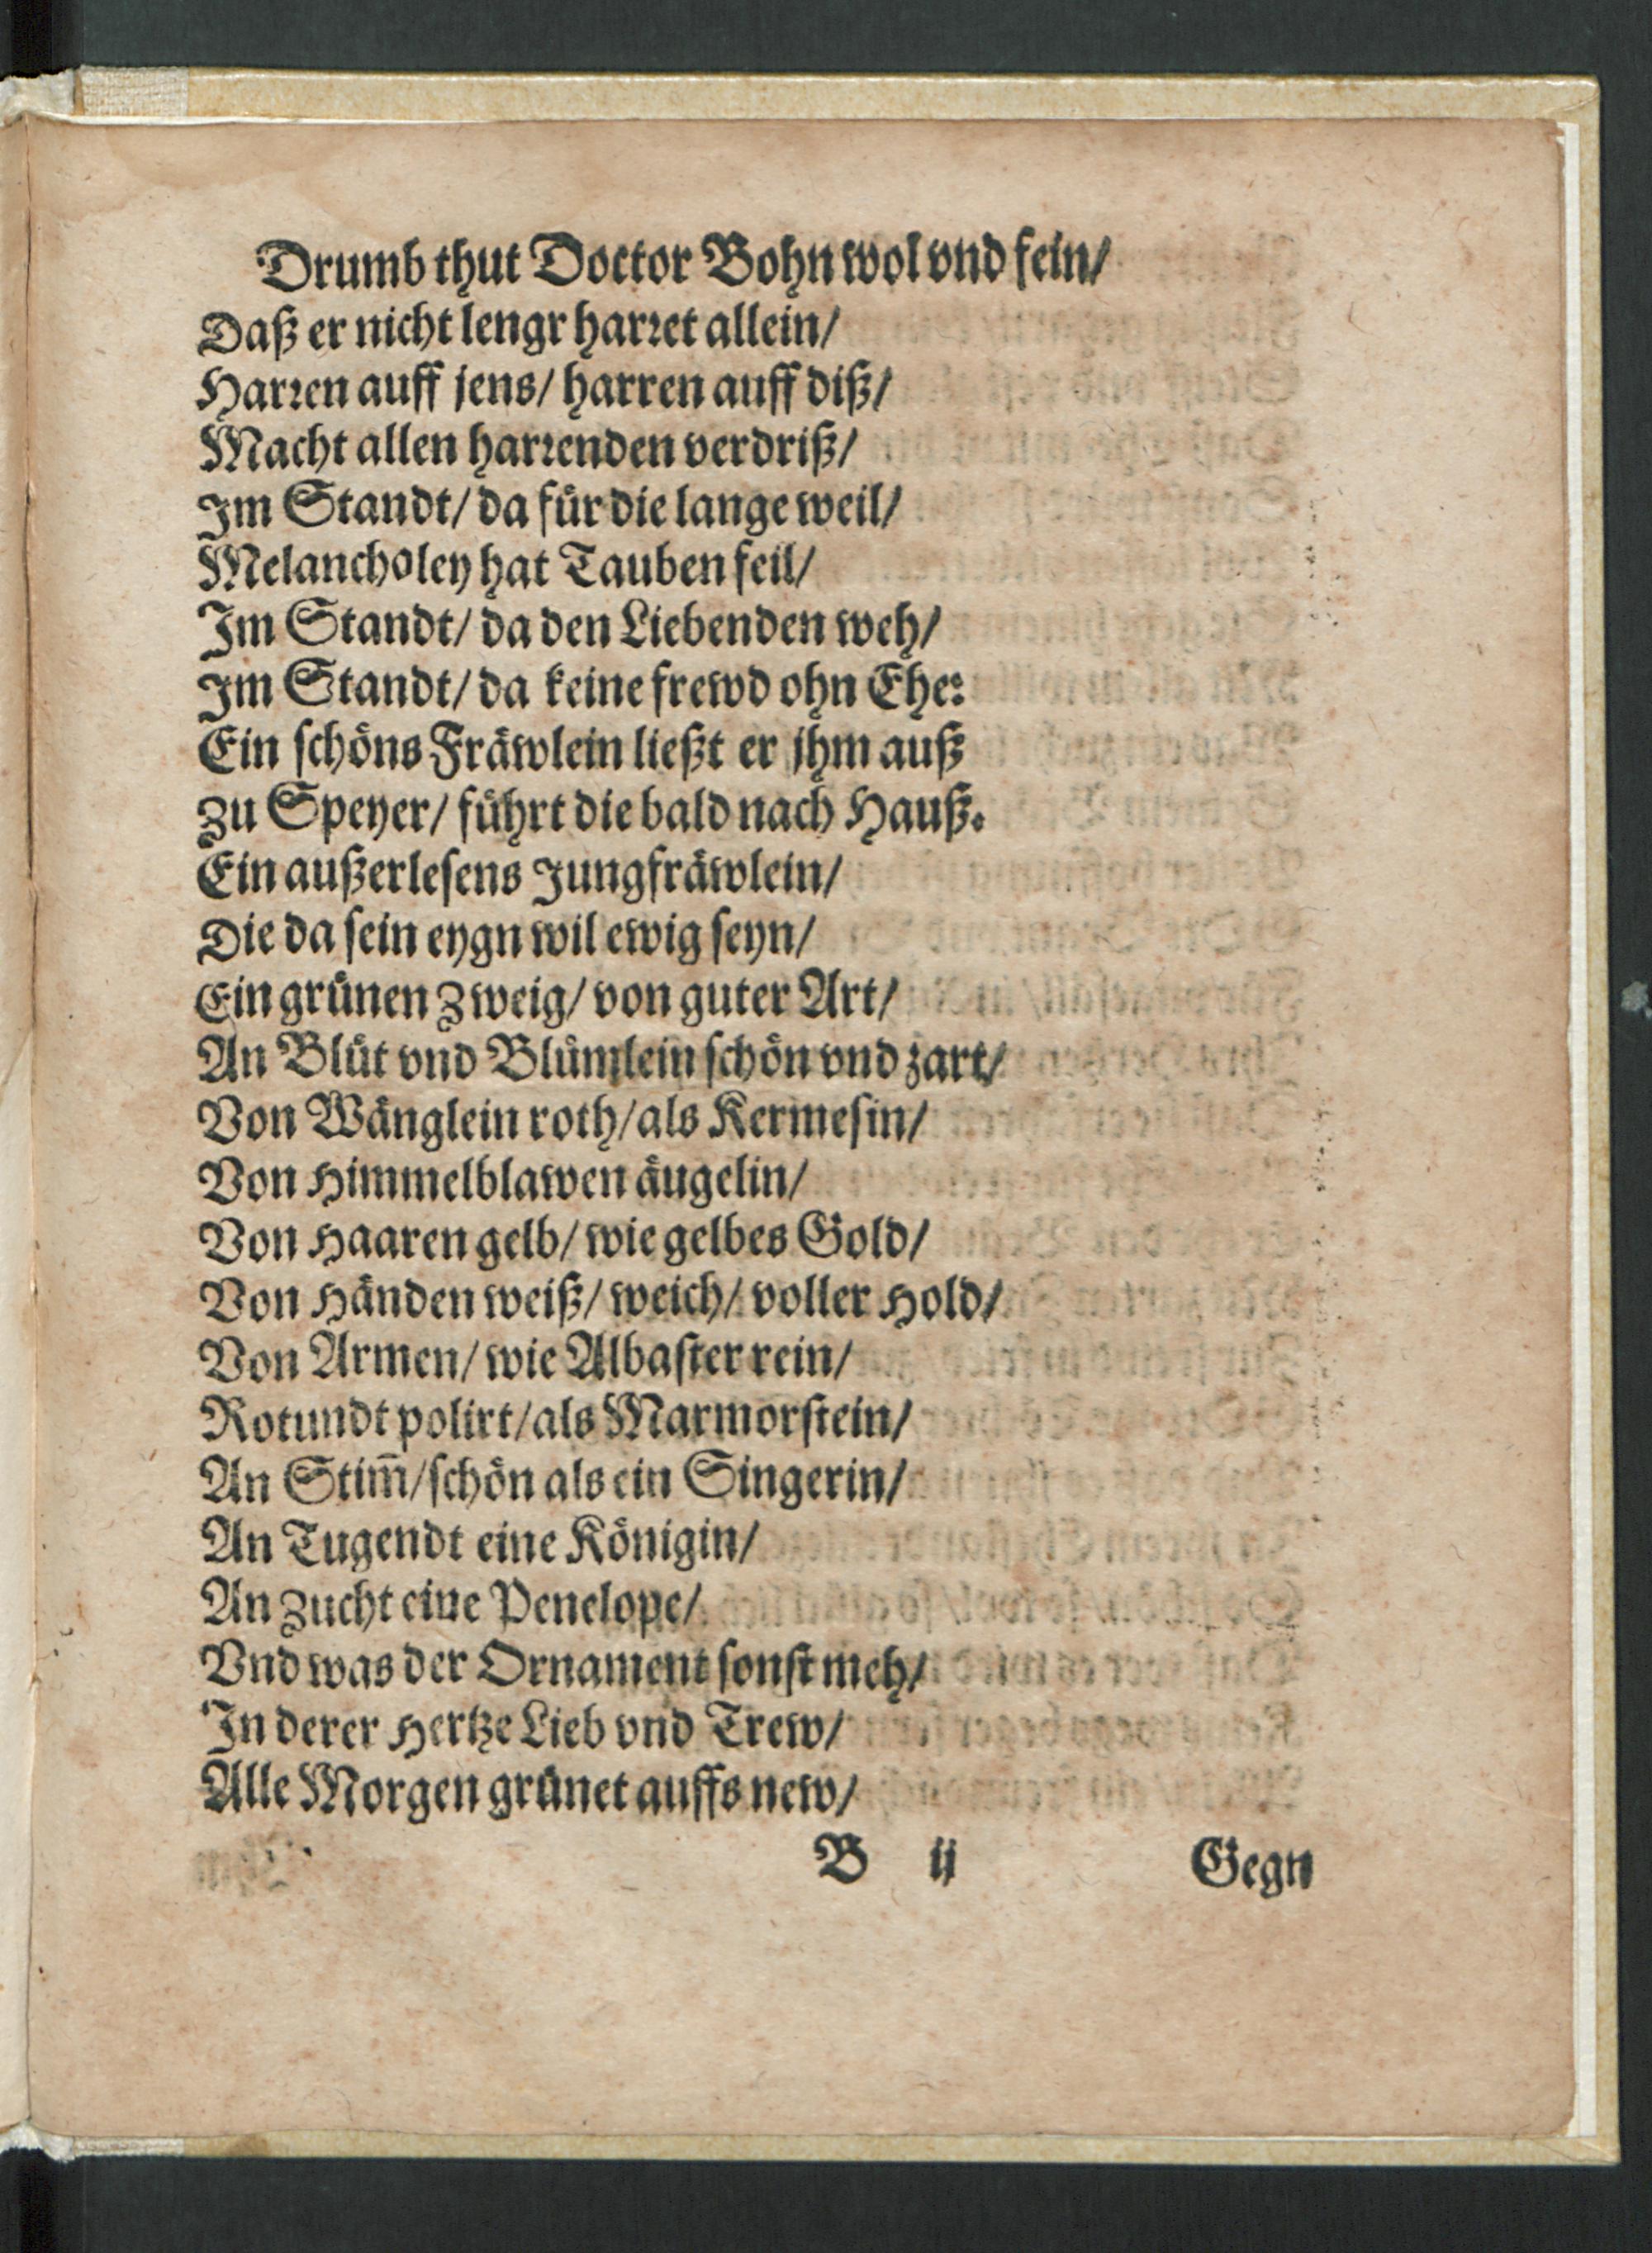 Drumb thut Doctor Bohn wol vnd fein/
Daß er nicht lengr harꝛet allein/
Harꝛen auff jens/ harren auff diß/
Macht allen harꝛenden verdriß/
Im Standt/ da für die lange weil/
Melancholey hat Tauben feil/
Im Standt/ da den Liebenden weh/
Im Standt/ da keine frewd ohn Ehe:
Ein ſchöns Fräwlein ließt er jhm auß
Zu Speyer/ führt die bald nach Hauß.
Ein außerleſens Jungfräwlein/
Die da ſein eygn wil ewig ſeyn/
Ein grünen Zweig/ von guter Art/
An Blüt vnd Blümlein ſchön vnd zart/
Von Wänglein roth/ als Kermeſin/
Von Himmelblawen äugelin/
Von Haaren gelb/ wie gelbes Gold/
Von Händen weiß/ weich/ voller Hold/
Von Armen/ wie Albaſter rein/
Rotundt polirt/ als Marmorſtein/
An Stim̃/ ſchön als ein Singerin/
An Tugendt eine Königin/
An Zucht eine Penelope/
Vnd was der Ornament ſonſt meh/
In derer Hertze Lieb vnd Trew/
Alle Morgen grünet auffs new/
B ij Gegn